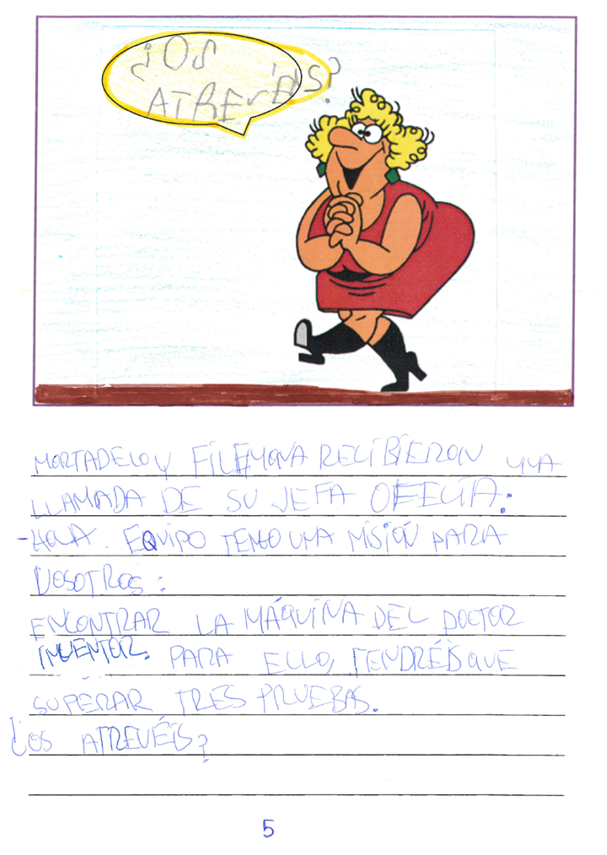 ¿OS
ATREVÉIS?
MORTADELO Y FILEMONA RECIBIERON UNA
LLAMADA DE SU JEFA OFELIA:
-HOLA. EQUIPO TENGO UNA MISIÓN PARA
VOSOTROS:
ENCONTRAR LA MÁQUINA DEL DOCTOR
INVENTOR. PARA ELLO, TENDRÉIS QUE
SUPERAR TRES PRUEBAS.
¿OS ATREVÉIS?
5